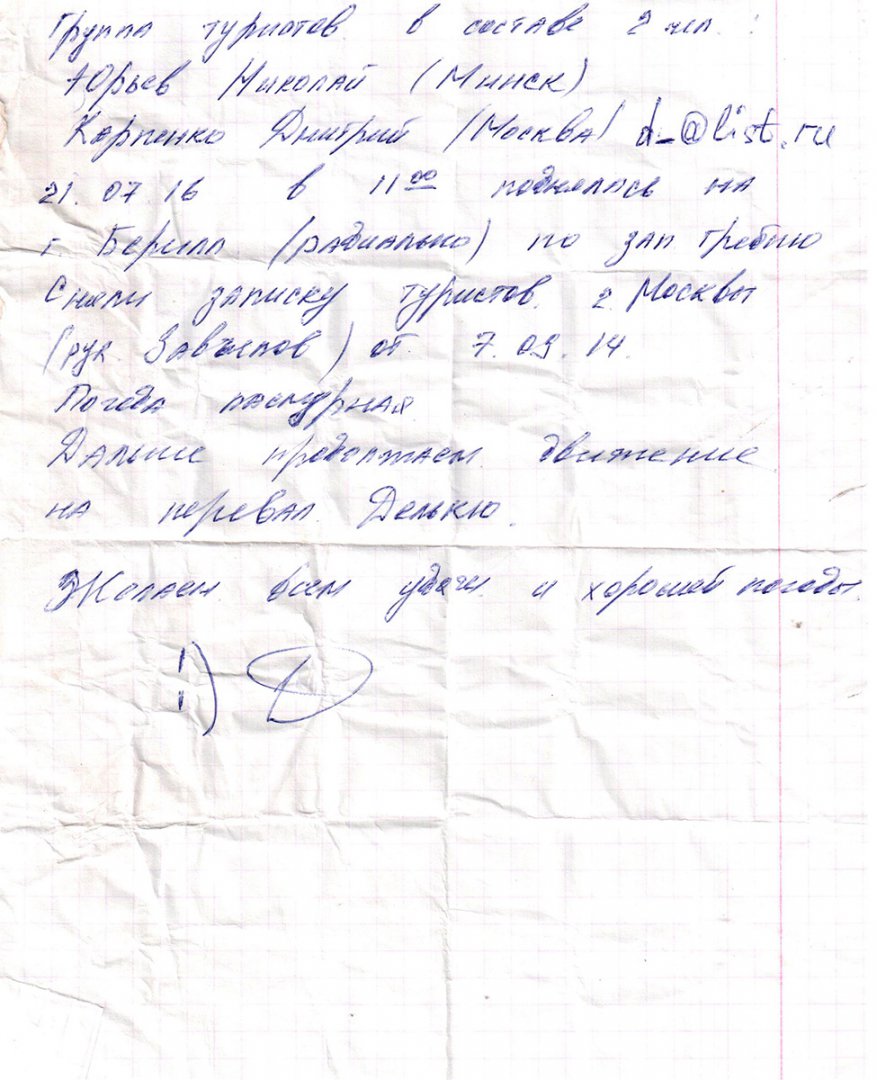 Группа туристов в составе 2 чел.:
Юрьев Николай (Минск)
Карпенко Дмитрий (Москва) d_@list.ru
21.07.16 в 11 00 поднялась на
г. Берилл (радиально) по зап. гребню
Сняли записку туристов г. Москвы
(рук. ) от 7.09.14.
Погода пасмурная.
Дальше продолжаем движение
на перевал Делькю.
Желаем всем удачи и хорошей погоды.
:)